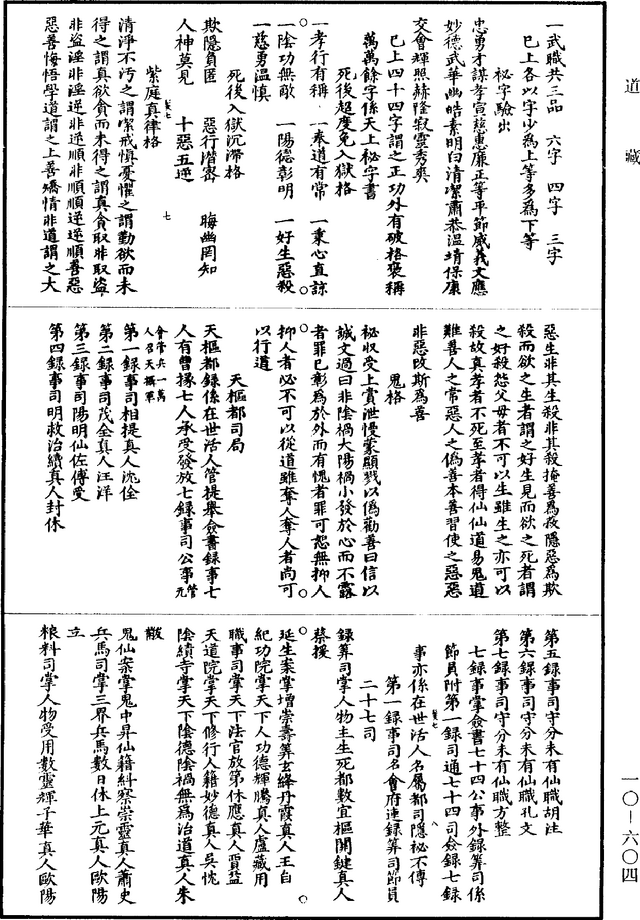 道藏
一武職共三品　六字　四字　三字
巳上各以字少為上等多為下等
秘字驗出
忠勇才謀孝宣慈惠廉正等平節威義文應
妙德武華幽皓素明白清潔肅恭溫靖保康
交會輝照赫隆寂靈秀爽
巳上四十四字謂之正功外有破格褒稱
萬萬餘字係天上秘字書
死後超度免入獄格
一孝行有稱　一奉道有常　一秉心直諒
一陰功無敵　一陽德彰明　一好生惡殺
一慈勇溫慎
死後入獄沉滯格
欺隱貪匿　惡行潛密　晦幽罔知
人神莫見　十惡五逆
七
紫庭真律格
清淨不污之謂潔戒慎憂懼之謂勤欲而未
得之謂真欲貪而未得之謂真貪取非取盜
非盜淫非淫逆非逆順非順順逆逆順善惡
惡善悔悟學道謂之上善矯情非道謂之大
惡生非其生殺非其殺掩善為敓隱惡為欺
殺而欲之生者謂之好生見而欲之死者謂
之好殺怨父母者不可以生雖生之亦可以
殺故真孝者不死至孝者得仙仙道易鬼道
難善人之常惡人之偽善本善習使之惡惡
非惡改斯為善
鬼格
秘收受上賞泄慢蒙顯戮以偽勸善曰信以
誠文過曰非陰禍大陽禍小發於心而不露
者罪巳彰為於外而有愧者罪可恕無抑人
抑人者必不可以從道雖奪人奪人者尚可
以行道
天樞都司局
天樞都錄係在世活人管提舉僉書錄事七
人有曹掾七人承受發放七錄事司公事管元
會帶兵一萬人召天樞軍
第一錄事司相提真人沈佺
第二錄事司茂全真人汪洋
第三錄事司陽明仙佐傅受
第四錄事司明救治績真人封休
第五錄事司守分未有仙職胡注
第六錄事司守分未有仙職孔文
第七錄事司守分未有仙職方整
七錄事掌僉書七十四公事外錄筭司係
節員附第一錄司通七十四司僉錄七錄
事亦係在世活人名屬都司隱秘不傳
八
二十七司
第一錄事司名會府連錄筭司節員
錄筭司掌人物主生死都數宜樞開鍵真人
蔡援
延生案掌增崇壽筭玄絳丹霞真人王自
紀功院掌天下人功德輝騰真人盧藏用
職事司掌天下法官放第休應真人賈益
天道院掌天下修行人籍妙德真人吳忱
陰績寺掌天下陰德陰禍無為治道真人朱
散
鬼仙案掌鬼中昇仙籍糾察崇靈真人蕭史
兵馬司掌三界兵馬數日休上元真人歐陽
立
粮料司掌人物受用數靈輝子華真人歐陽
一〇—六〇四